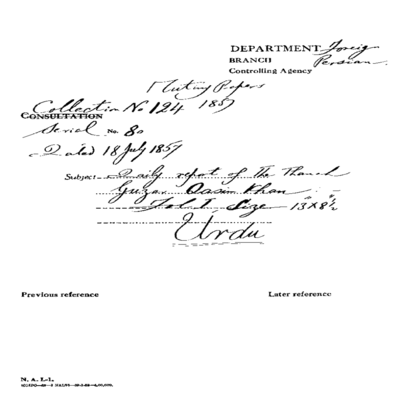 DEPARTMENT Foreig
BRANCH Persian
Controlling Agency
Mutiny Papers
Collection No 124 1857
CONSULTATION
Serial No. 80
Dated 18 July 1857
Subject Daily repot of The Thanah
Guzar Qasim Khan
Fol 1. Size 13" X 8½"
Urdu
Previous reference
Later reference
N. A. I.-1.